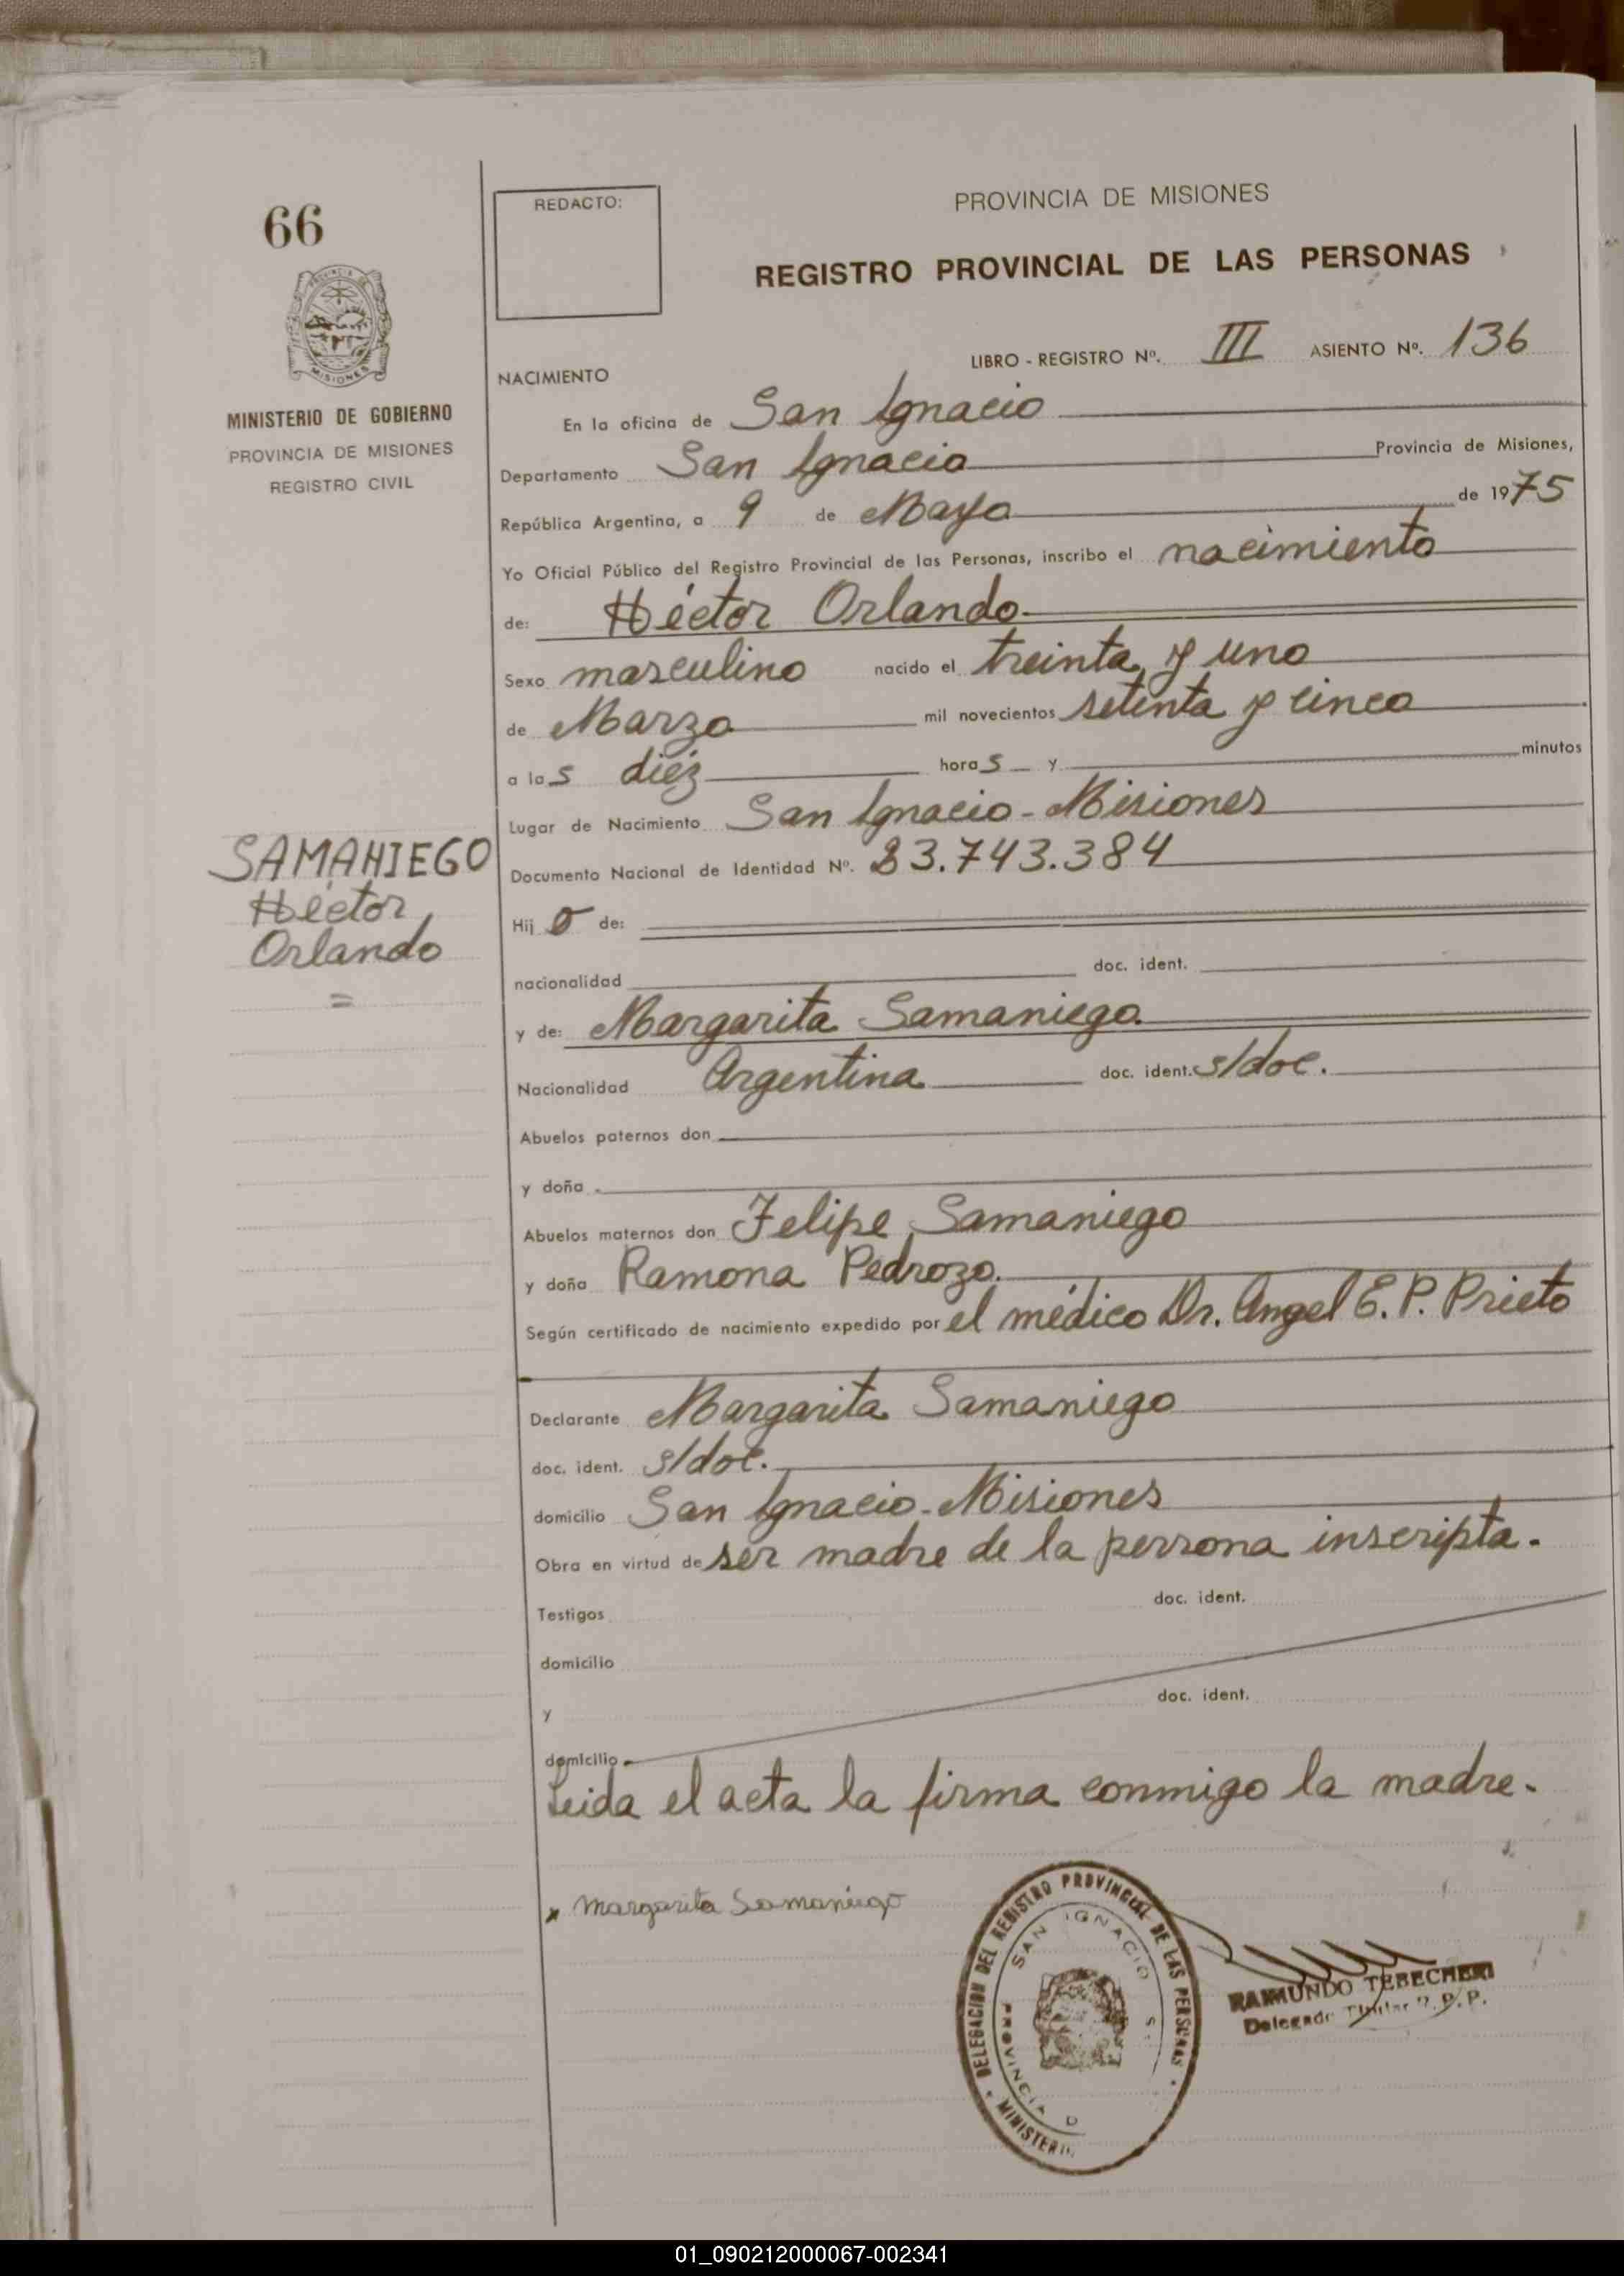 66
REDACTO:
PROVINCIA DE MISIONES
REGISTRO PROVINCIAL DE LAS PERSONAS
MINISTERIO DE GOBIERNO
PROVINCIA DE MISIONES
REGISTRO CIVIL
LIBRO - REGISTRO Nº. III ASIENTO Nº. 136
NACIMIENTO
En la oficina de San Ignacio
Departamento San Ignacio Provincia de Misiones,
República Argentina, a 9 de Mayo de 1975
Yo Oficial Público del Registro Provincial de las Personas, inscribo el nacimiento
de: Héctor Orlando.
Sexo masculino nacido el treinta y uno
de Marzo mil novecientos setenta y cinco
a las diéz horas y minutos
Lugar de Nacimiento San Ignacio - Misiones
SAMANIEGO
Héctor
Orlando
=
Documento Nacional de Identidad Nº. 23.743.384
Hijo de:
nacionalidad doc. ident.
y de: Margarita Samaniego.
Nacionalidad Argentina doc. ident. s/doc.
Abuelos paternos don
y doña
Abuelos maternos don Felipe Samaniego
y doña Ramona Pedrozo.
Según certificado de nacimiento expedido por el médico Dr. Angel E. P. Prieto
Declarante Margarita Samaniego
doc. ident. s/doc.
domicilio San Ignacio - Misiones
Obra en virtud de ser madre de la persona inscripta.
Testigos doc. ident.
domicilio
y doc. ident.
domicilio
Leida el acta la firma conmigo la madre.
x Margarita Samaniego
DELEGACION DEL REGISTRO PROVINCIAL DE LAS PERSONAS
SAN IGNACIO
PROVINCIA D
MINISTERIO
RAIMUNDO TEBECHERI
Delegado Titular R. P. P.
01_090212000067-002341